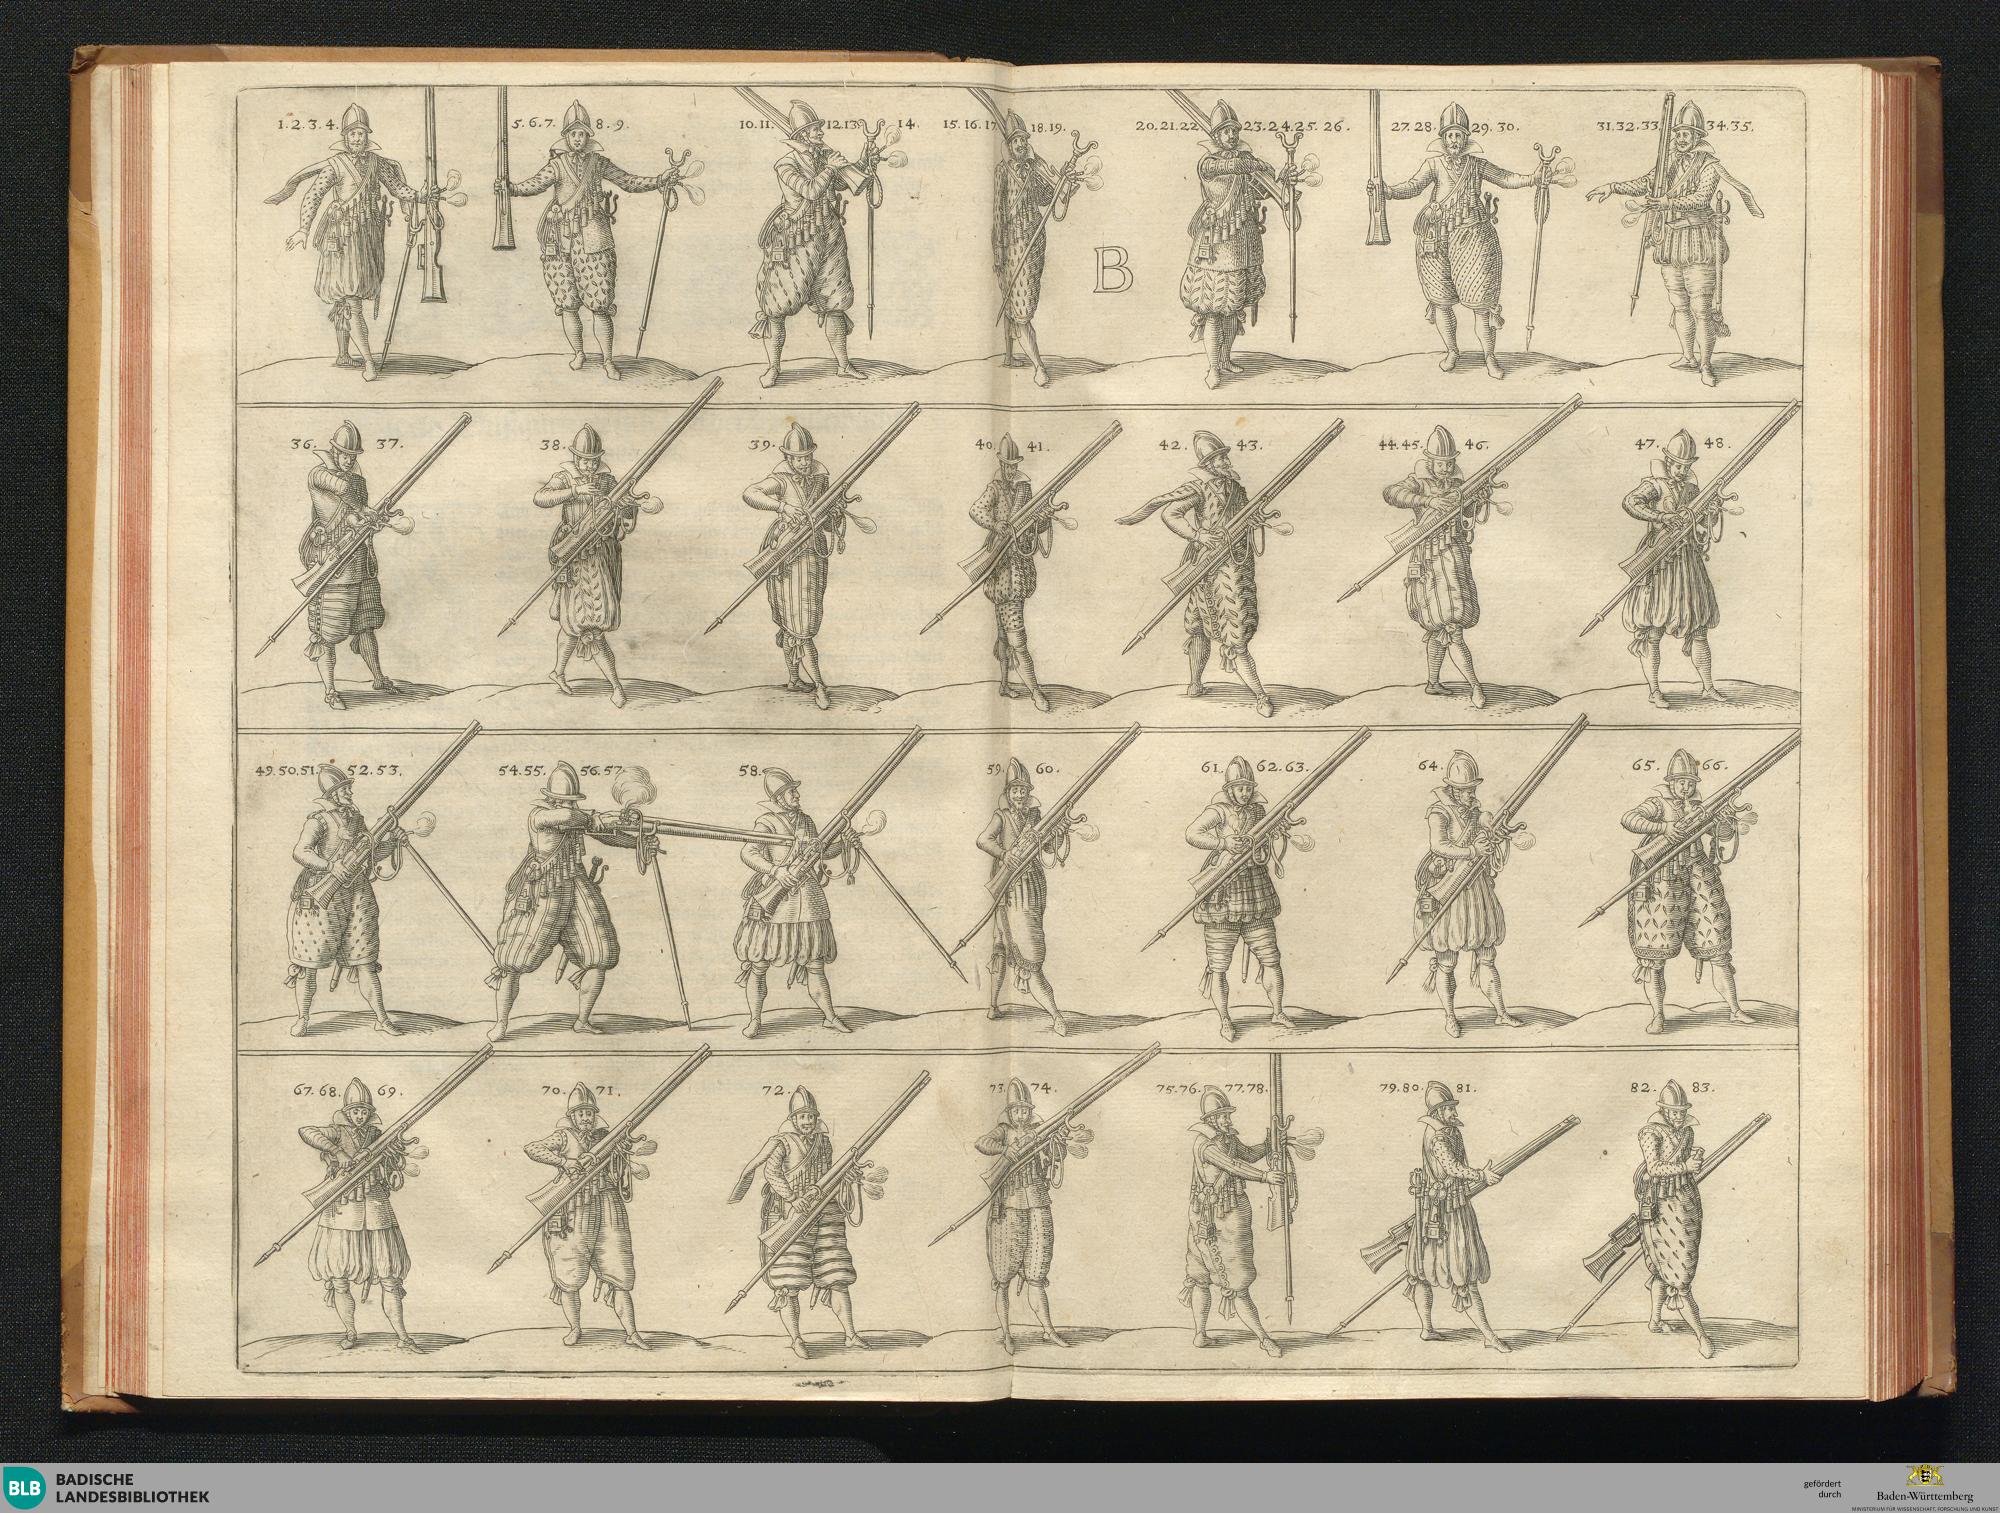 1.2.3.4. 5.6.7. 8.9. 10.11. 12.13. 14. 15.16.17 18.19. 20.21.22. 23.24.25.26. 27.28. 29.30. 31.32.33. 34.35.
B
36. 37. 38. 39. 40. 41. 42. 43. 44.45. 46. 47. 48.
49.50.51. 52.53. 54.55. 56.57. 58. 59. 60. 61. 62.63. 64. 65. 66.
67.68. 69. 70. 71. 72. 73. 74. 75.76. 77.78. 79.80. 81. 82. 83.
BLB
BADISCHE
LANDESBIBLIOTHEK
gefördert
durch
Baden-Württemberg
MINISTERIUM FÜR WISSENSCHAFT, FORSCHUNG UND KUNST